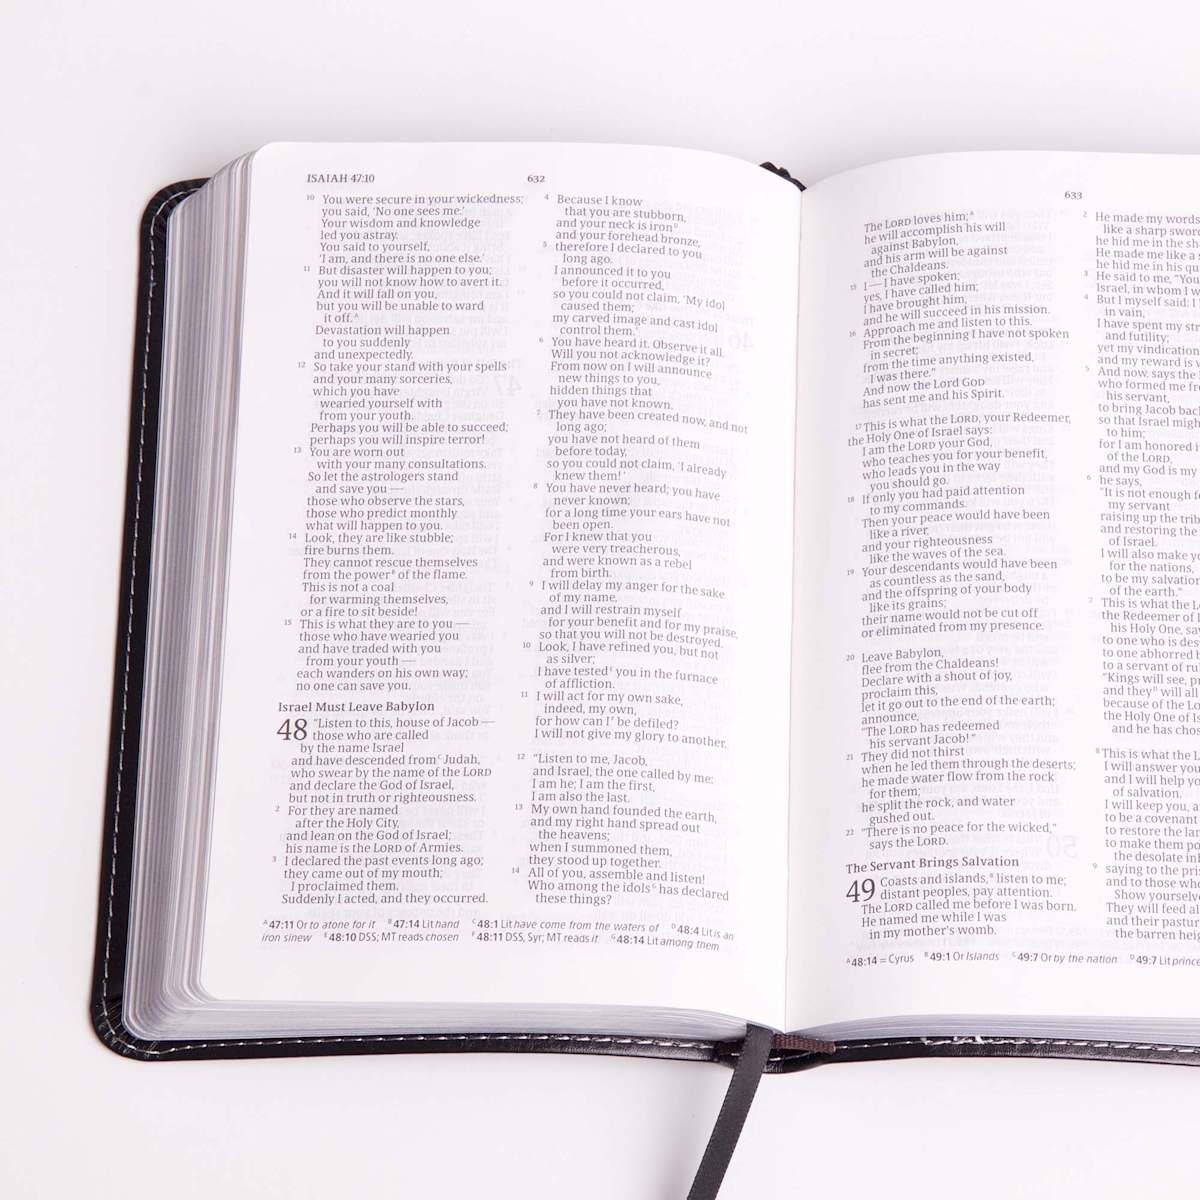 ISAIAH 47:10
632
10 You were secure in your wickedness;
you said, ‘No one sees me.’
Your wisdom and knowledge
led you astray.
You said to yourself,
‘I am, and there is no one else.’
11 But disaster will happen to you;
you will not know how to avert it.
And it will fall on you,
but you will be unable to ward
it off.A
Devastation will happen
to you suddenly
and unexpectedly.
12 So take your stand with your spells
and your many sorceries,
which you have
wearied yourself with
from your youth.
Perhaps you will be able to succeed;
perhaps you will inspire terror!
13 You are worn out
with your many consultations.
So let the astrologers stand
and save you —
those who observe the stars,
those who predict monthly
what will happen to you.
14 Look, they are like stubble;
fire burns them.
They cannot rescue themselves
from the powerB of the flame.
This is not a coal
for warming themselves,
or a fire to sit beside!
15 This is what they are to you —
those who have wearied you
and have traded with you
from your youth —
each wanders on his own way;
no one can save you.
Israel Must Leave Babylon
48 “Listen to this, house of Jacob —
those who are called
by the name Israel
and have descended fromC Judah,
who swear by the name of the LORD
and declare the God of Israel,
but not in truth or righteousness.
2 For they are named
after the Holy City,
and lean on the God of Israel;
his name is the LORD of Armies.
3 I declared the past events long ago;
they came out of my mouth;
I proclaimed them.
Suddenly I acted, and they occurred.
4 Because I know
that you are stubborn,
and your neck is ironD
and your forehead bronze,
5 therefore I declared to you
long ago.
I announced it to you
before it occurred,
so you could not claim, ‘My idol
caused them;
my carved image and cast idol
control them.’
6 You have heard it. Observe it all.
Will you not acknowledge it?
From now on I will announce
new things to you,
hidden things that
you have not known.
7 They have been created now, and not
long ago;
you have not heard of them
before today,
so you could not claim, ‘I already
knew them!’
8 You have never heard; you have
never known;
for a long time your ears have not
been open.
For I knew that you
were very treacherous,
and were known as a rebel
from birth.
9 I will delay my anger for the sake
of my name,
and I will restrain myself
for your benefit and for my praise,
so that you will not be destroyed.
10 Look, I have refined you, but not
as silver;
I have testedE you in the furnace
of affliction.
11 I will act for my own sake,
indeed, my own,
for how can IF be defiled?
I will not give my glory to another.
12 “Listen to me, Jacob,
and Israel, the one called by me:
I am he; I am the first,
I am also the last.
13 My own hand founded the earth,
and my right hand spread out
the heavens;
when I summoned them,
they stood up together.
14 All of you, assemble and listen!
Who among the idolsG has declared
these things?
A 47:11 Or to atone for it B 47:14 Lit hand C 48:1 Lit have come from the waters of D 48:4 Lit is an
iron sinew E 48:10 DSS; MT reads chosen F 48:11 DSS, Syr; MT reads it G 48:14 Lit among them
633
The LORD loves him;A
he will accomplish his will
against Babylon,
and his arm will be against
the Chaldeans.
15 I — I have spoken;
yes, I have called him;
I have brought him,
and he will succeed in his mission.
16 Approach me and listen to this.
From the beginning I have not spoken
in secret;
from the time anything existed,
I was there.”
And now the Lord GOD
has sent me and his Spirit.
17 This is what the LORD, your Redeemer,
the Holy One of Israel says:
I am the LORD your God,
who teaches you for your benefit,
who leads you in the way
you should go.
18 If only you had paid attention
to my commands.
Then your peace would have been
like a river,
and your righteousness
like the waves of the sea.
19 Your descendants would have been
as countless as the sand,
and the offspring of your body
like its grains;
their name would not be cut off
or eliminated from my presence.
20 Leave Babylon,
flee from the Chaldeans!
Declare with a shout of joy,
proclaim this,
let it go out to the end of the earth;
announce,
“The LORD has redeemed
his servant Jacob!”
21 They did not thirst
when he led them through the deserts;
he made water flow from the rock
for them;
he split the rock, and water
gushed out.
22 “There is no peace for the wicked,”
says the LORD.
The Servant Brings Salvation
49 Coasts and islands,B listen to me;
distant peoples, pay attention.
The LORD called me before I was born.
He named me while I was
in my mother’s womb.
2 He made my words
like a sharp
he hid me in the
He made me like a
he hid me in his
3 He said to me, “You
Israel, in whom I
4 But I myself said: I
in vain,
I have spent my
and futility;
yet my vindication
and my reward is
5 And now, says the
who formed me
his servant,
to bring Jacob
so that Israel
to him;
for I am honored
of the LORD,
and my God is my
6 he says,
“It is not enough
my servant
raising up the
and restoring the
of Israel.
I will also make
for the nations,
to be my salvation
of the earth.”
7 This is what the
the Redeemer of
his Holy One,
to one who is
to one abhorred
to a servant of
“Kings will see,
and theyD will all
because of the
the Holy One of
and he has
8 This is what the
I will answer you
and I will help
of salvation.
I will keep you,
to be a covenant
to restore the
to make them
the desolate
9 saying to the
and to those
Show yourselves
They will feed
and their
the barren
A 48:14 = Cyrus B 49:1 Or Islands C 49:7 Or by the nation D 49:7 Lit